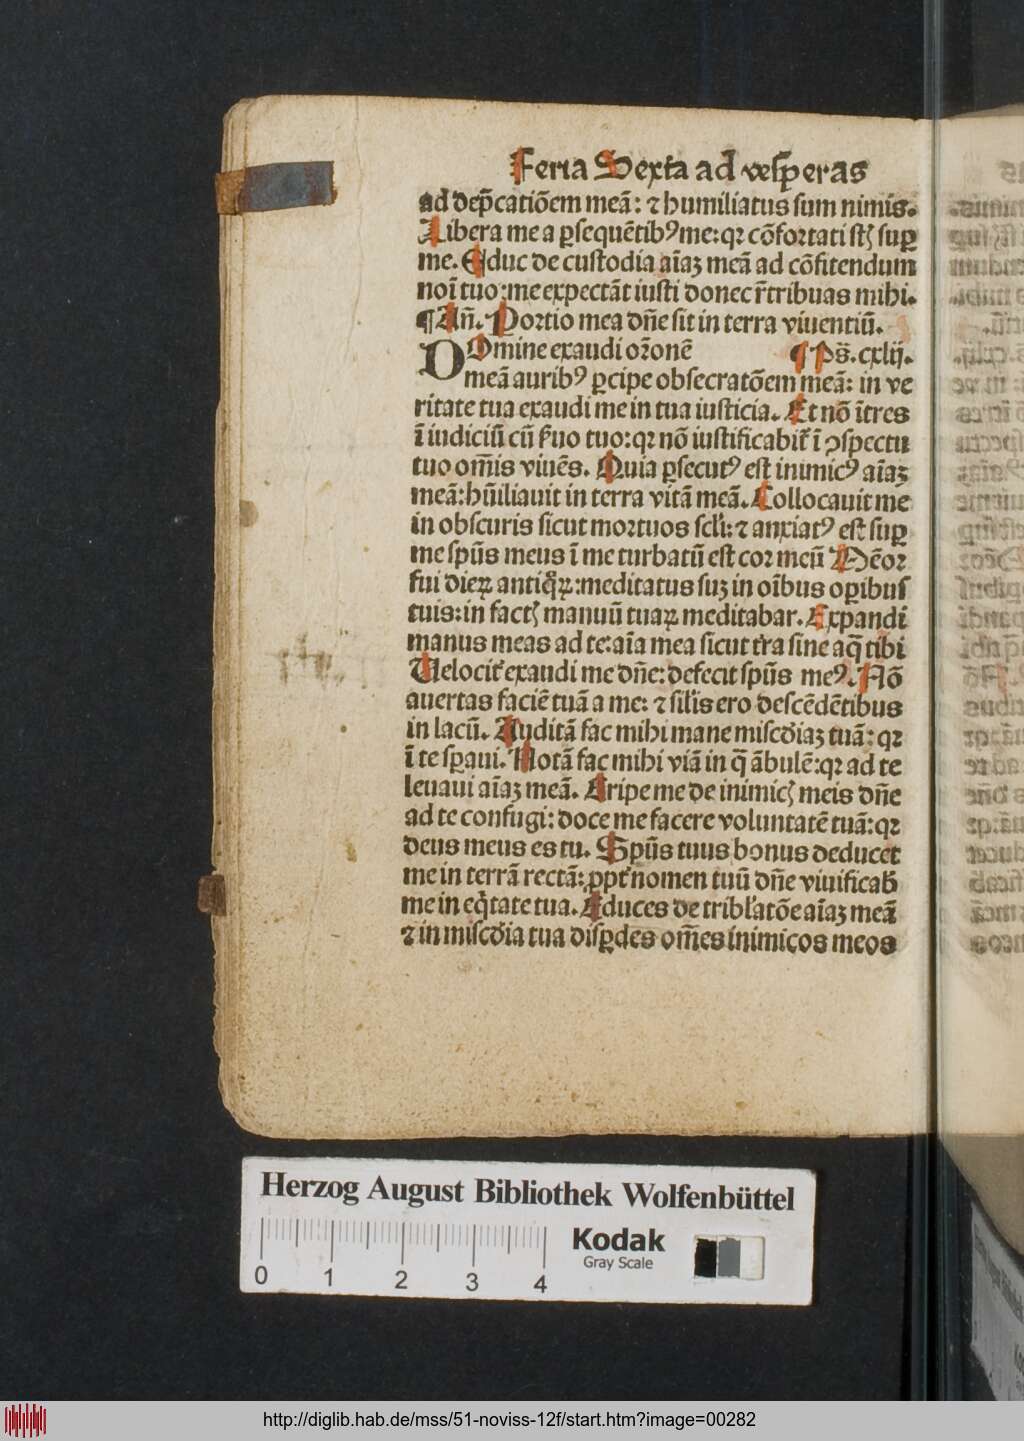 Feria Sexta ad vesꝑeras
ad dep̄catiōem meā: ⁊ humiliatus sum nimis.
Libera me a ꝑsequētibꝰ me: qꝛ cōfortati sūt suꝑ
me. Educ de custodia aīaꝫ meā ad cōfitendum
noī tuo: me expectāt iusti donec r̄tribuas mihi.
¶ Añ. Portio mea dñe sit in terra viuentiū.
DOmine exaudi orōnē ¶ Ps̄. cxlij.
meā auribꝰ ꝑcipe obsecratōem meā: in ve
ritate tua exaudi me in tua iusticia. Et nō ītres
ī iudiciū cū ẜuo tuo: qꝛ nō iustificabit̄ ī ꝯspectu
tuo om̄is viuēs. Quia ꝑsecutꝰ est inimicꝰ aīaꝫ
meā: hūiliauit in terra vitā meā. Collocauit me
in obscuris sicut mortuos scl̄i: ⁊ anxiatꝰ est suꝑ
me sp̄us meus ī me turbatū est cor meū Mēor
fui dieꝝ antiqͦꝝ: meditatus suꝫ in oībus oꝑibus
tuis: in factꝭ manuū tuaꝝ meditabar. Expandi
manus meas ad te: aīa mea sicut t̄ra sine aq̄ tibi
Velocit̄ exaudi me dñe: defecit sp̄us meꝰ. Nō
auertas faciē tuā a me: ⁊ sil̄is ero descēdētibus
in lacū. Auditā fac mihi mane misc̄diaꝫ tuā: qꝛ
ī te sꝑaui. Notā fac mihi viā in q̄ ābulē: qꝛ ad te
leuaui aīaꝫ meā. Eripe me de inimicꝭ meis dñe
ad te confugi: doce me facere voluntatē tuā: qꝛ
deus meus es tu. Sp̄us tuus bonus deducet
me in terrā rectā: ꝓpt̄ nomen tuū dñe viuificab̄
me in eq̇tate tua. Educes de tribl̄atōe aīaꝫ meā
⁊ in misc̄dia tua disꝑdes om̄es inimicos meos
Herzog August Bibliothek Wolfenbüttel
Kodak
Gray Scale
0 1 2 3 4
http://diglib.hab.de/mss/51-noviss-12f/start.htm?image=00282